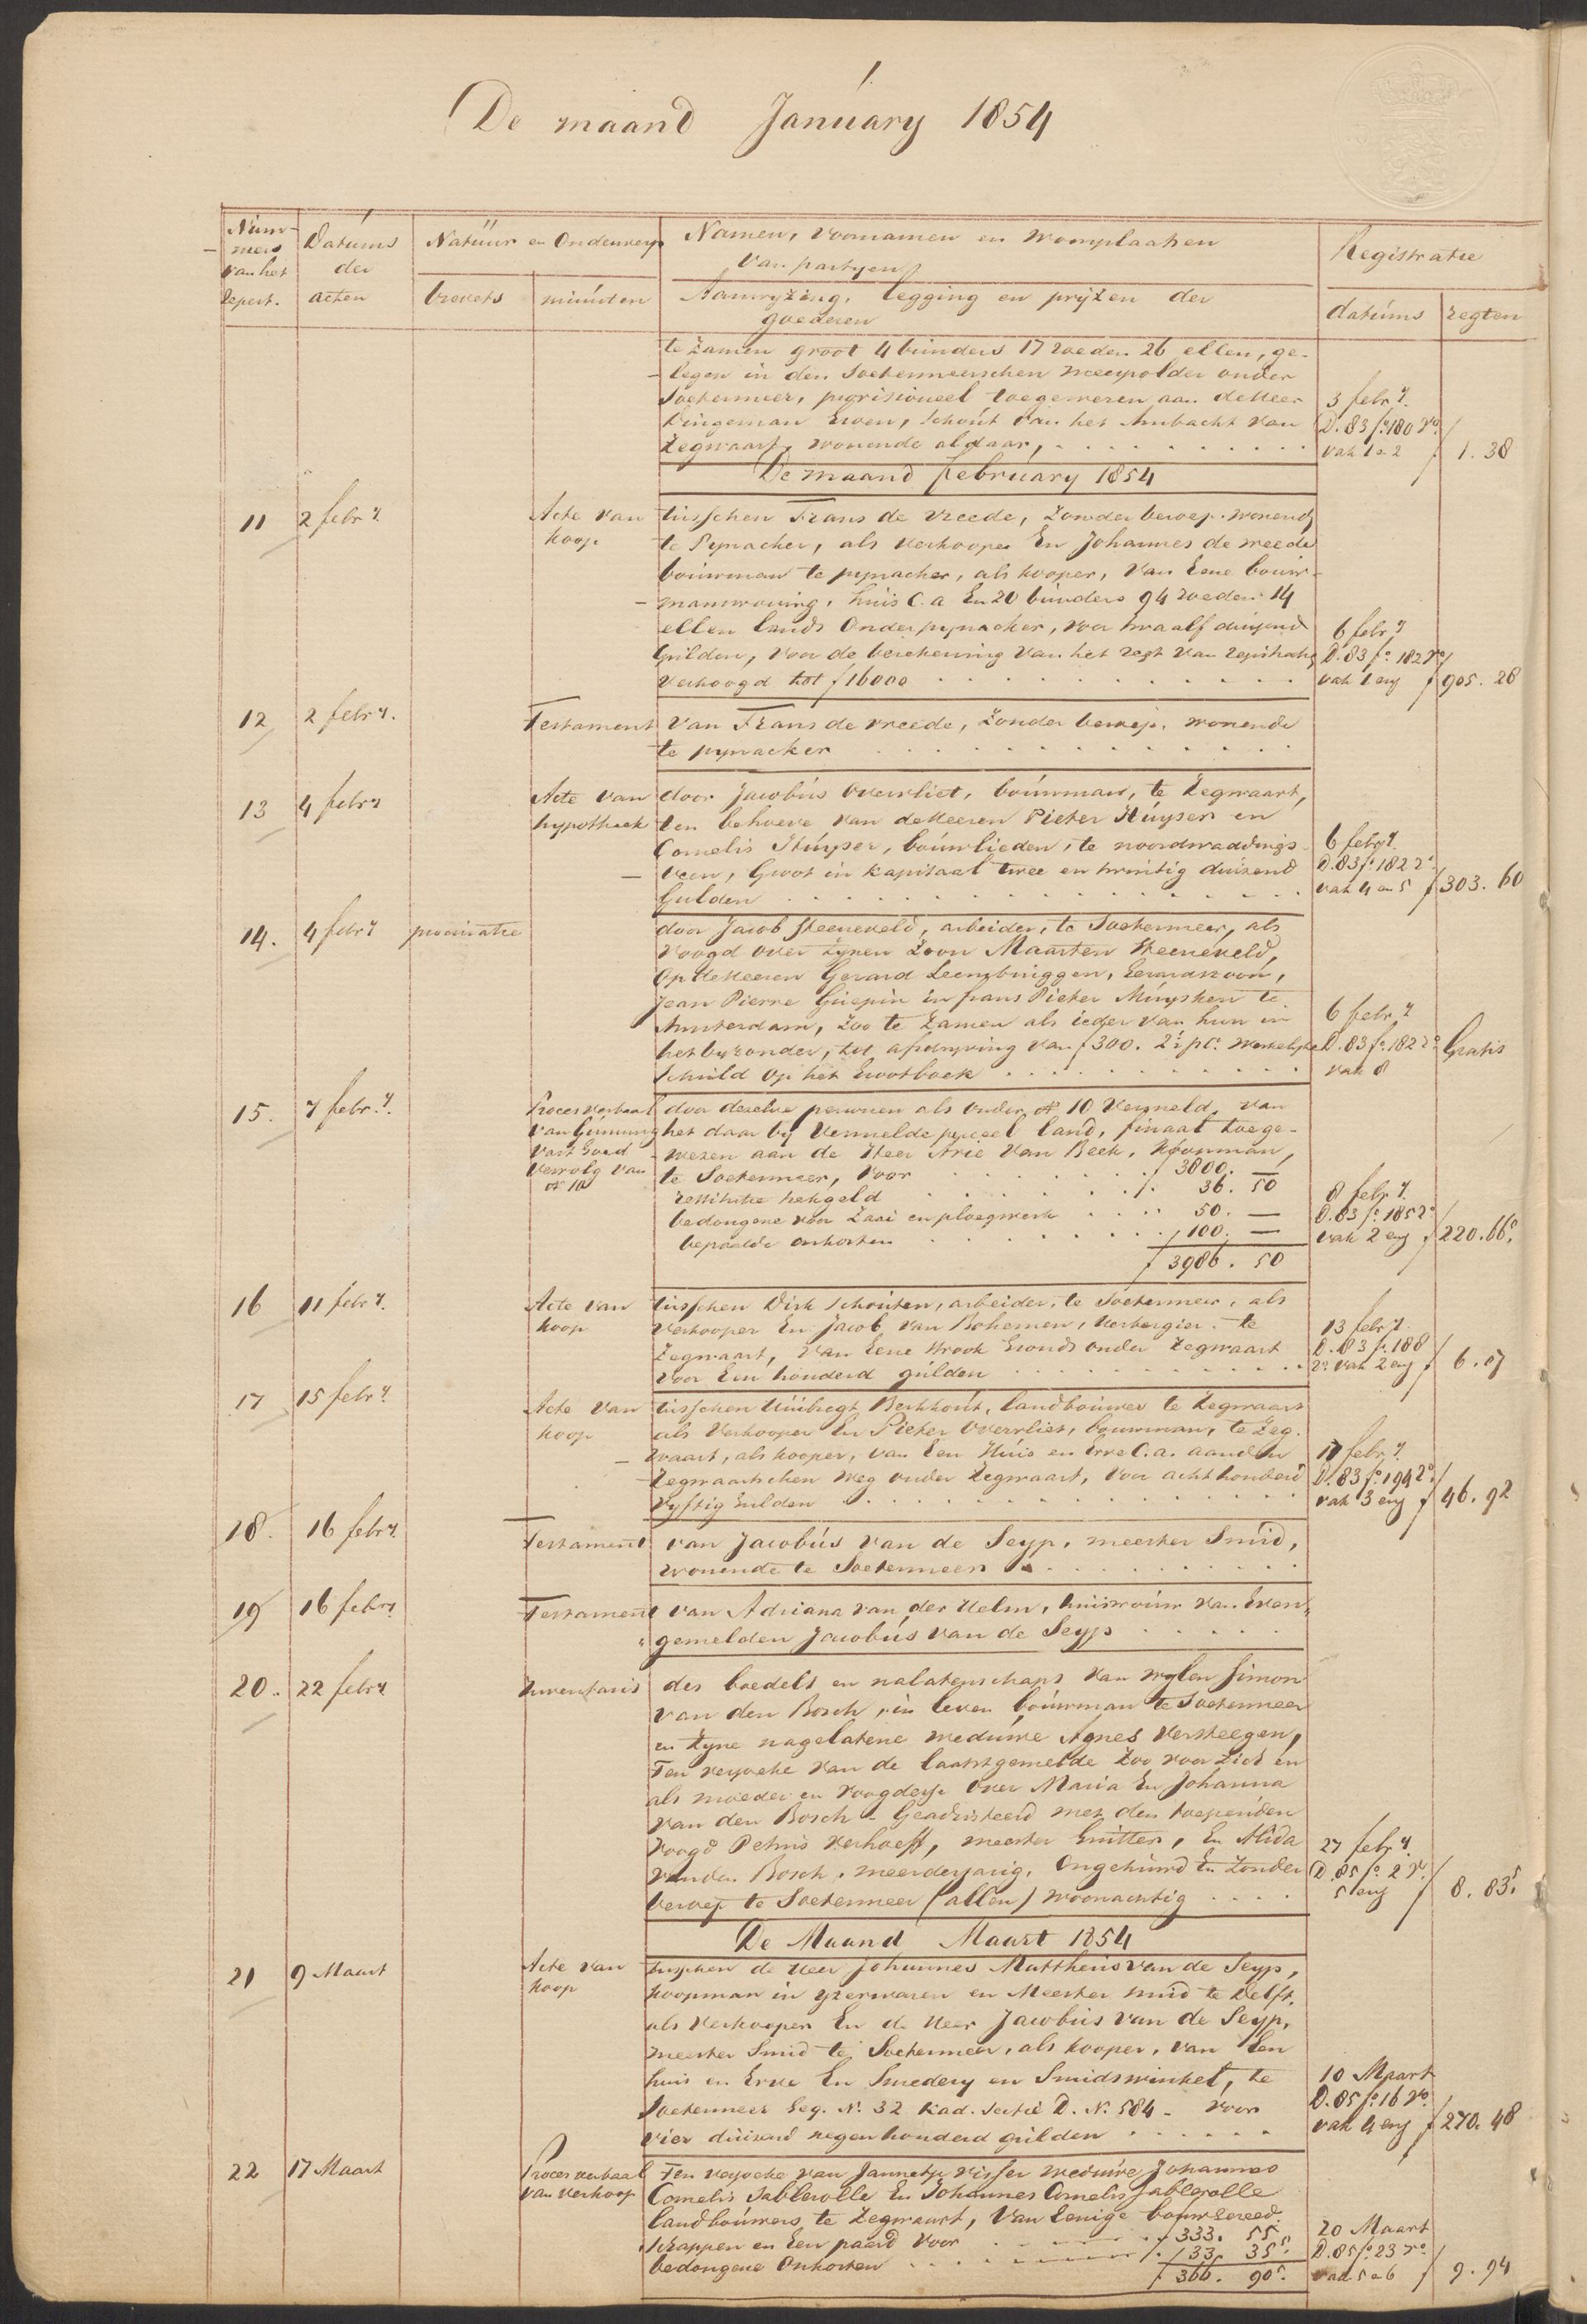 De maand January 1854
Num- Datums Natuur en Onderwerp Namen, Voornamen en Woonplaatsen Registratie
mers der van partyen
van het acten brevets minuten Aanwyzing, legging en pryzen der datums regten
Repert. goederen
te zamen groot 4 bunders 17 roeden 26 ellen, ge-
legen in den Soetermeerschen meerpolder onder
Soetermeer, provisioneel toegewezen aan de Heer 3 febry.
Dingeman Ewen, Schout van het Ambacht van D. 83 fo. 180 vo.
Zegwaart, wonende aldaar, vak 1 a 2 f 1.38
De maand february 1854
11 2 febry. Acte van tusschen Frans de Vreede, zonder beroep, wonende
koop te Pynacker, als verkooper En Johannes de Vreede
bouwman te pynacker, als kooper, van Eene bouw-
manswoning, huis C.a. En 20 bunders 94 roeden 14
ellen lands Onder pynacker, voor twaalf duizend 6 febry.
Gulden, voor de berekening van het regt van registratie D. 83 fo. 182 ro.
verhoogd tot f 16000 vak 1 env f 905.28
12 2 febry. Testament van Frans de Vreede, zonder beroep, wonende
te pynacker
13 4 febry Acte van door Jacobus Overvliet, bouwman, te Zegwaart,
hypotheek ten behoeve van de Heeren Pieter Stuyser en
Cornelis Stuyser, bouwlieden, te noordwaddings- 6 febry.
veen, Groot in kapitaal twee en twintig duizend D. 83 fo. 182 ro.
Gulden vak 4 en 5 f 303.60
14. 4 febry procuratie door Jacob Steeneveld, arbeider, te Soetermeer, als
voogd over zynen zoon Maarten Steeneveld,
Op de Heeren Gerard Leembruggen, Gerardszoon,
Jean Pierre Guépin en frans Pieter Muysken te
Amsterdam, zoo te zamen als ieder van hun in 6 febry.
het byzonder, tot afschryving van f 300. 2½ pCt. werkelyke D. 83 fo. 182 vo. Gratis
schuld op het Grootboek vak 8
15. 7 febry. Proces verbaal door dezelve personen als onder No 10 vermeld, van
van Gunning het daar by vermelde perceel land, finaal toege-
vast Goed wezen aan de Heer Arie van Beek, koopman,
vervolg van te Soetermeer, voor f 3800. —
No 10 restitutie hekgeld 36. 50 8 febry.
bedongene voor Zaai en ploegwerk 50. — D. 83 fo. 185 ro.
bepaalde onkosten 100. — vak 2 env f 220.66⁵
f 3986. 50
16 11 febry. Acte van tusschen Dirk Schouten, arbeider, te Soetermeer, als
koop verkooper En Jacob van Bohemen, herbergier, te 13 febry.
Zegwaart, van Eene strook Gronds onder Zegwaart D. 83 fo. 188
voor Een honderd gulden ro. vak 2 env f 6.07
17 15 febry Acte van tusschen Huibregt Berkhout, landbouwer te Zegwaart
koop als Verkooper En Pieter Overvliet, bouwman, te Zeg-
waart, als kooper, van Een Huis en Erve C.a. aan den 17 febry.
Zegwaartschen weg onder Zegwaart, voor acht honderd D. 83 fo. 194 ro.
vyftig gulden vak 3 env f 46.92
18. 16 febry. Testament van Jacobus van de Seyp, meester Smid,
wonende te Soetermeer
19 16 febry. Testament van Adriana van der Helm, huisvrouw van Even-
gemelden Jacobus van de Seyp
20. 22 febry Inventaris des boedels en nalatenschaps van wylen Simon
van den Bosch, in leven bouwman te Soetermeer
en Zyne nagelatene weduwe Agnes Versteegen,
Ten verzoeke van de laatstgemelde Zoo voor zich en
als moeder en voogdesse over Maria En Johanna
van den Bosch - Geadsisteerd met den toezienden
voogd Petrus Verhoeff, meester Smitter, En Alida 27 febry.
van den Bosch, meerderjarig, Ongehuwd En Zonder D. 85 fo. 2 v.
beroep te Soetermeer (allen) woonachtig 5 env f 8.83⁵
De Maand Maart 1854
21 9 Maart Acte van tusschen de Heer Johannes Mattheus van de Seyp,
koop koopman in yzerwaren en Meester smid te Delft,
als Verkooper En de Heer Jacobus van de Seyp,
meester Smid te Soetermeer, als kooper, van Een
huis en Erve En Smedery en Smidswinkel, te 10 Maart
Soetermeer Geq. No. 32 Kad. Sectie D. No. 584 - voor D. 85 fo. 16 vo.
vier duizend negen honderd gulden vak 4 env f 270.48
22 17 Maart Proces verbaal Ten verzoeke van Jannetje Visser weduwe Johannes
van verkoop Cornelis Sablerolle En Johannes Cornelis Sablerolle
landbouwers te Zegwaart, van Eenige bouwgereed-
schappen en Een paard voor f 333. 55 20 Maart
bedongene Onkosten 33. 35⁵ D. 85 fo. 23 vo.
f 366. 90⁵ vak 5 a 6 f 9.94